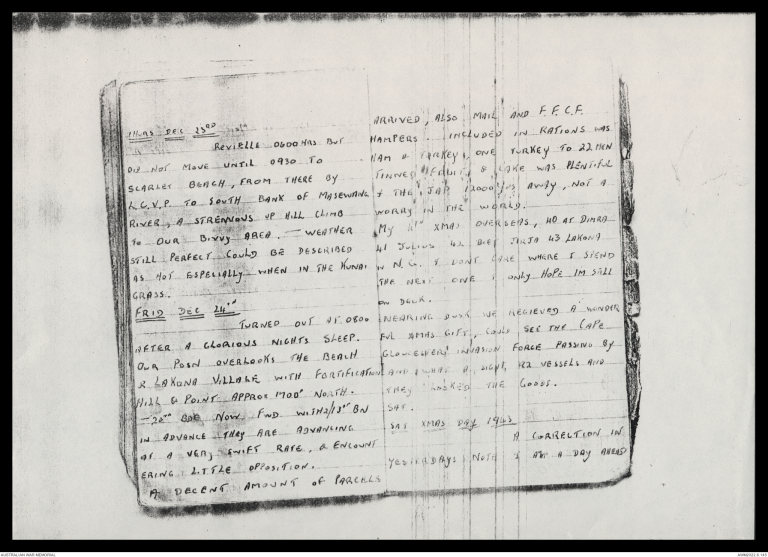 THURS DEC 23RD
REVIELLE 0600 HRS BUT
DID NOT MOVE UNTIL 0930 TO
SCARLET BEACH, FROM THERE BY
L.C.V.P. TO SOUTH BANK OF MASEWANG
RIVER, A STRENUOUS UP HILL CLIMB
TO OUR BIVVY AREA. — WEATHER
STILL PERFECT COULD BE DESCRIBED
AS HOT ESPECIALLY WHEN IN THE KUNAI
GRASS.
FRID DEC 24TH
TURNED OUT AT 0800
AFTER A GLORIOUS NIGHTS SLEEP.
OUR POSN OVERLOOKS THE BEACH
& LAKONA VILLAGE WITH FORTIFICATION
HILL & POINT APPROX 1700× NORTH.
— 20TH BDE NOW FWD WITH 2/13TH BN
IN ADVANCE THEY ARE ADVANCING
AT A VERY SWIFT RATE, & ENCOUNT
ERING LITTLE OPPOSITION.
A DECENT AMOUNT OF PARCELS
ARRIVED, ALSO MAIL AND F.F.C.F.
HAMPERS. INCLUDED IN RATIONS WAS
HAM & TURKEY, ONE TURKEY TO 22 MEN
TINNED FRUIT & CAKE WAS PLENTIFUL
& THE JAP 2000 YDS AWAY, NOT A
WORRY IN THE WORLD.
MY XMAS OVERSEAS, 40 AT DIMRA
41 JULIUS 42 BIET JIRJA 43 LAKONA
IN N.G. I DONT CARE WHERE I SPEND
THE NEXT ONE I ONLY HOPE IM STILL
ON DECK.
NEARING DUSK WE RECIEVED A WONDER
FUL XMAS GIFT, COULD SEE THE CAPE
GLOUCESTER INVASION FORCE PASSING BY
AND WHAT A SIGHT, 82 VESSELS AND
THEY LOOKED THE GOODS.
SAT.
SAT XMAS DAY 1943
A CORRECTION IN
YESTERDAYS NOTE I AM A DAY AHEAD
AUSTRALIAN WAR MEMORIAL